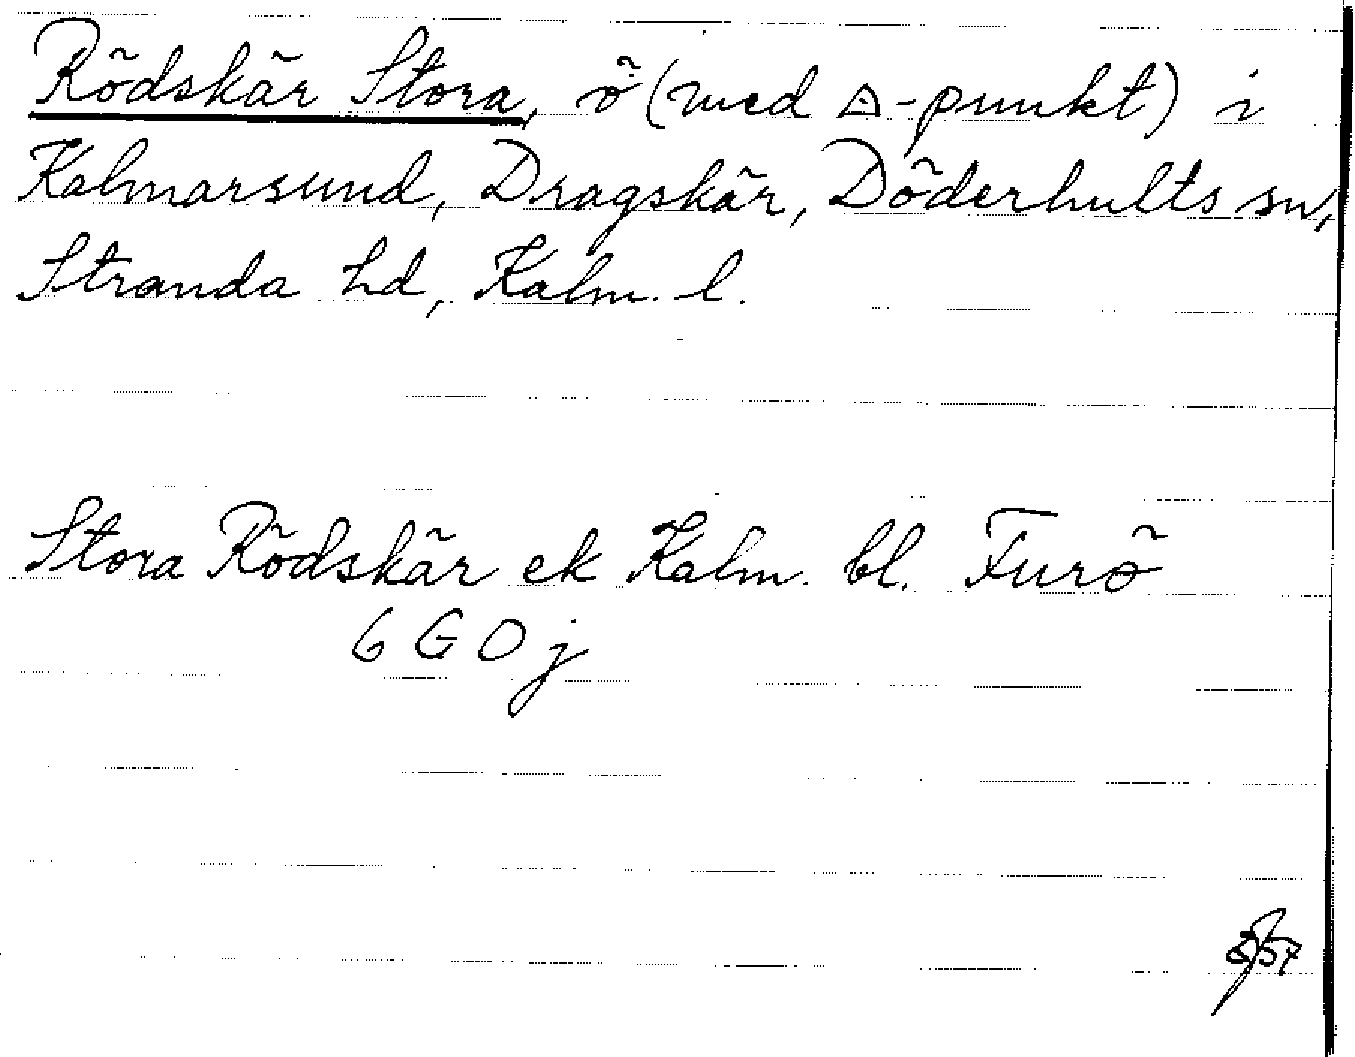 Rödskär Stora, ö (med △-punkt) i
Kalmarsund, Dragskär, Döderhults sn,
Stranda hd, Kalm. l.
Stora Rödskär ek Kalm. bl. Furö
6 G O j